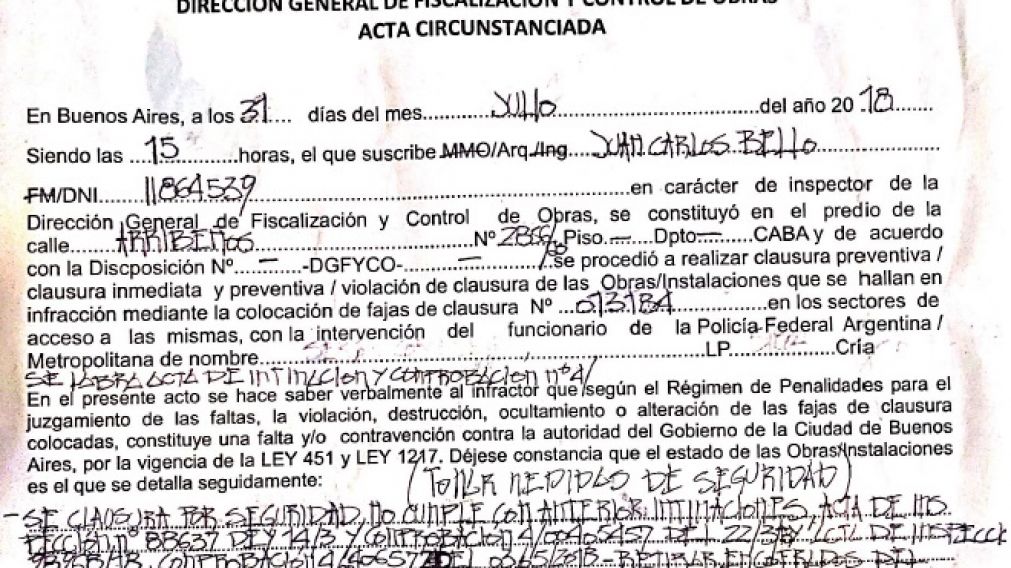 DIRECCIÓN GENERAL DE FISCALIZACIÓN Y CONTROL DE OBRAS
ACTA CIRCUNSTANCIADA
En Buenos Aires, a los 31.... días del mes..............JULIO..............del año 20 18.......
Siendo las ....15..........horas, el que suscribe MMO/Arq./Ing....JUAN CARLOS BELLO....
FM/DNI......11864539......en carácter de inspector de la
Dirección General de Fiscalización y Control de Obras, se constituyó en el predio de la
calle........ARRIBEÑOS........Nº 2866/ Piso.—... Dpto—.....CABA y de acuerdo
con la Discposición Nº....—....-DGFYCO-........—......../..se procedió a realizar clausura preventiva /
clausura inmediata y preventiva / violación de clausura de las Obras/Instalaciones que se hallan en
infracción mediante la colocación de fajas de clausura Nº ...013184...............en los sectores de
acceso a las mismas, con la intervención del funcionario de la Policía Federal Argentina /
Metropolitana de nombre........................................LP..............Cría
SE LABRA ACTA DE INTIMACION Y COMPROBACION nº4/
En el presente acto se hace saber verbalmente al infractor que según el Régimen de Penalidades para el
juzgamiento de las faltas, la violación, destrucción, ocultamiento o alteración de las fajas de clausura
colocadas, constituye una falta y/o contravención contra la autoridad del Gobierno de la Ciudad de Buenos
Aires, por la vigencia de la LEY 451 y LEY 1217. Déjese constancia que el estado de las Obras/Instalaciones
es el que se detalla seguidamente: (TOMAR MEDIDAS DE SEGURIDAD)
- SE CLAUSURA POR SEGURIDAD, NO CUMPLE CON ANTERIOR INTIMACIONES, ACTA DE INS
PECCIÓN nº 88637 DEY 14/3 Y COMPROBACION 4/00405457 DEL 22/3/18 ACTA DE INSPECCI
COMPROBACION DEL 03/5/2018 - RETIRAR ENCERADOS DEL